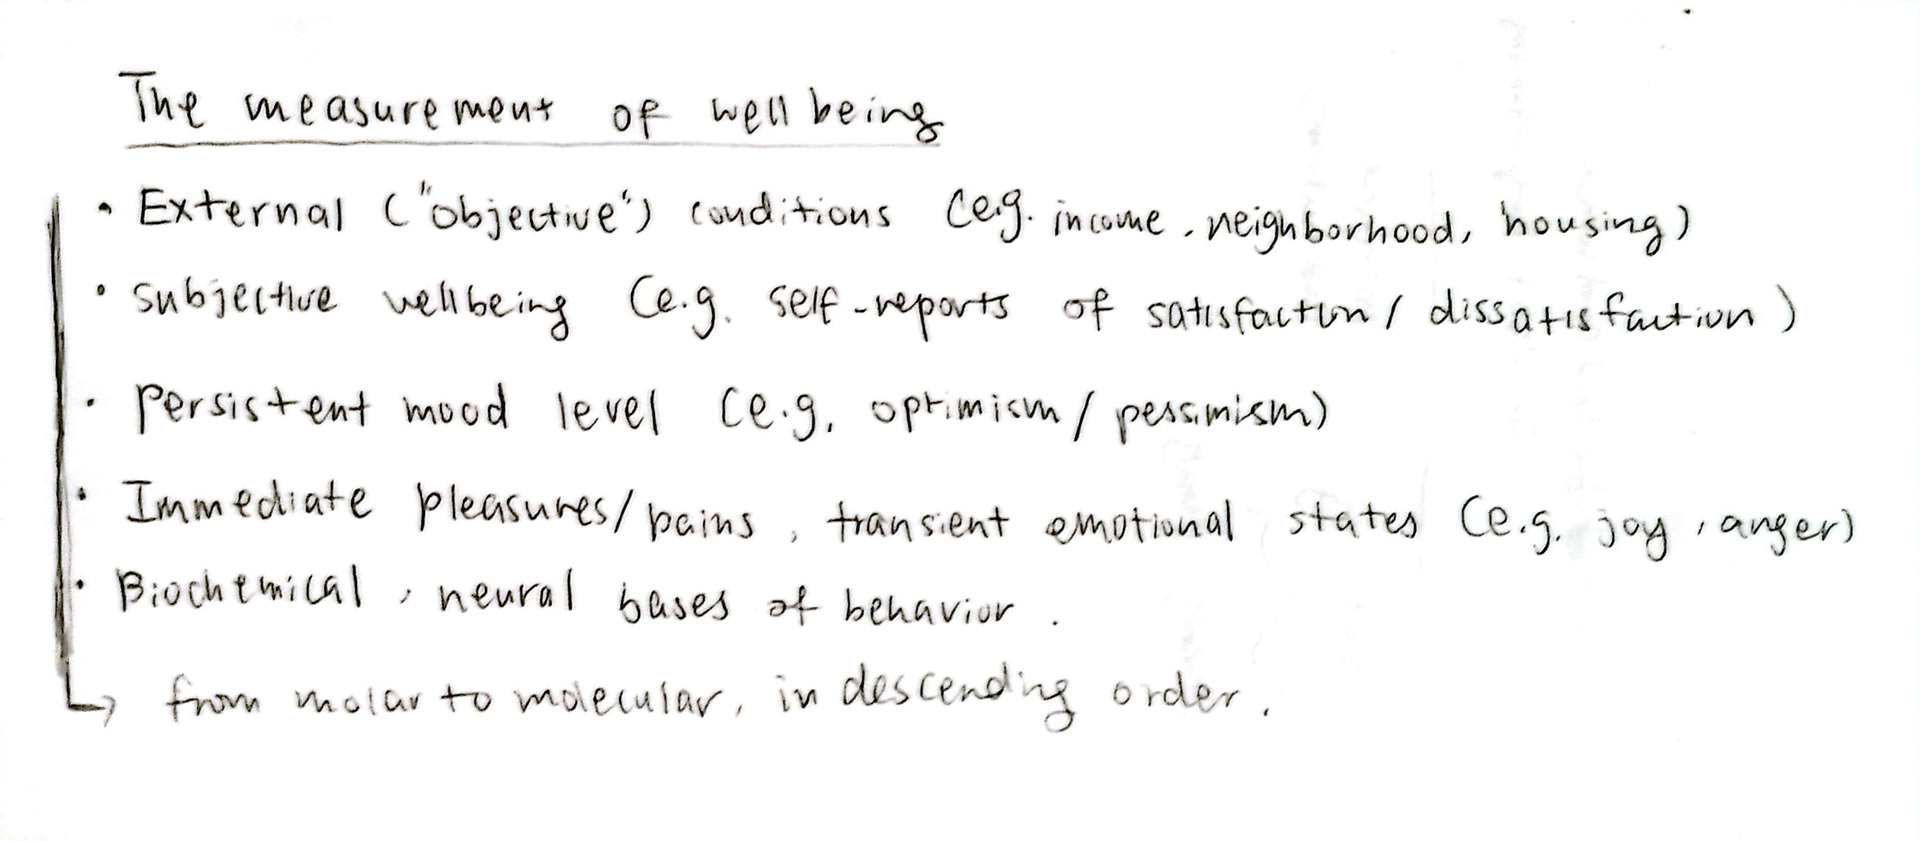 The measurement of wellbeing
• External ("objective") conditions (e.g. income, neighborhood, housing)
• subjective wellbeing (e.g. self-reports of satisfaction / dissatisfaction)
• Persistent mood level (e.g. optimism / pessimism)
• Immediate pleasures/pains, transient emotional states (e.g. joy, anger)
• Biochemical, neural bases of behavior.
↳ from molar to molecular, in descending order.